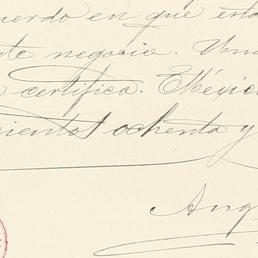 uerdo en que esta
te negocio. Una
certifico. Méxic
ientos ochenta y
Ang